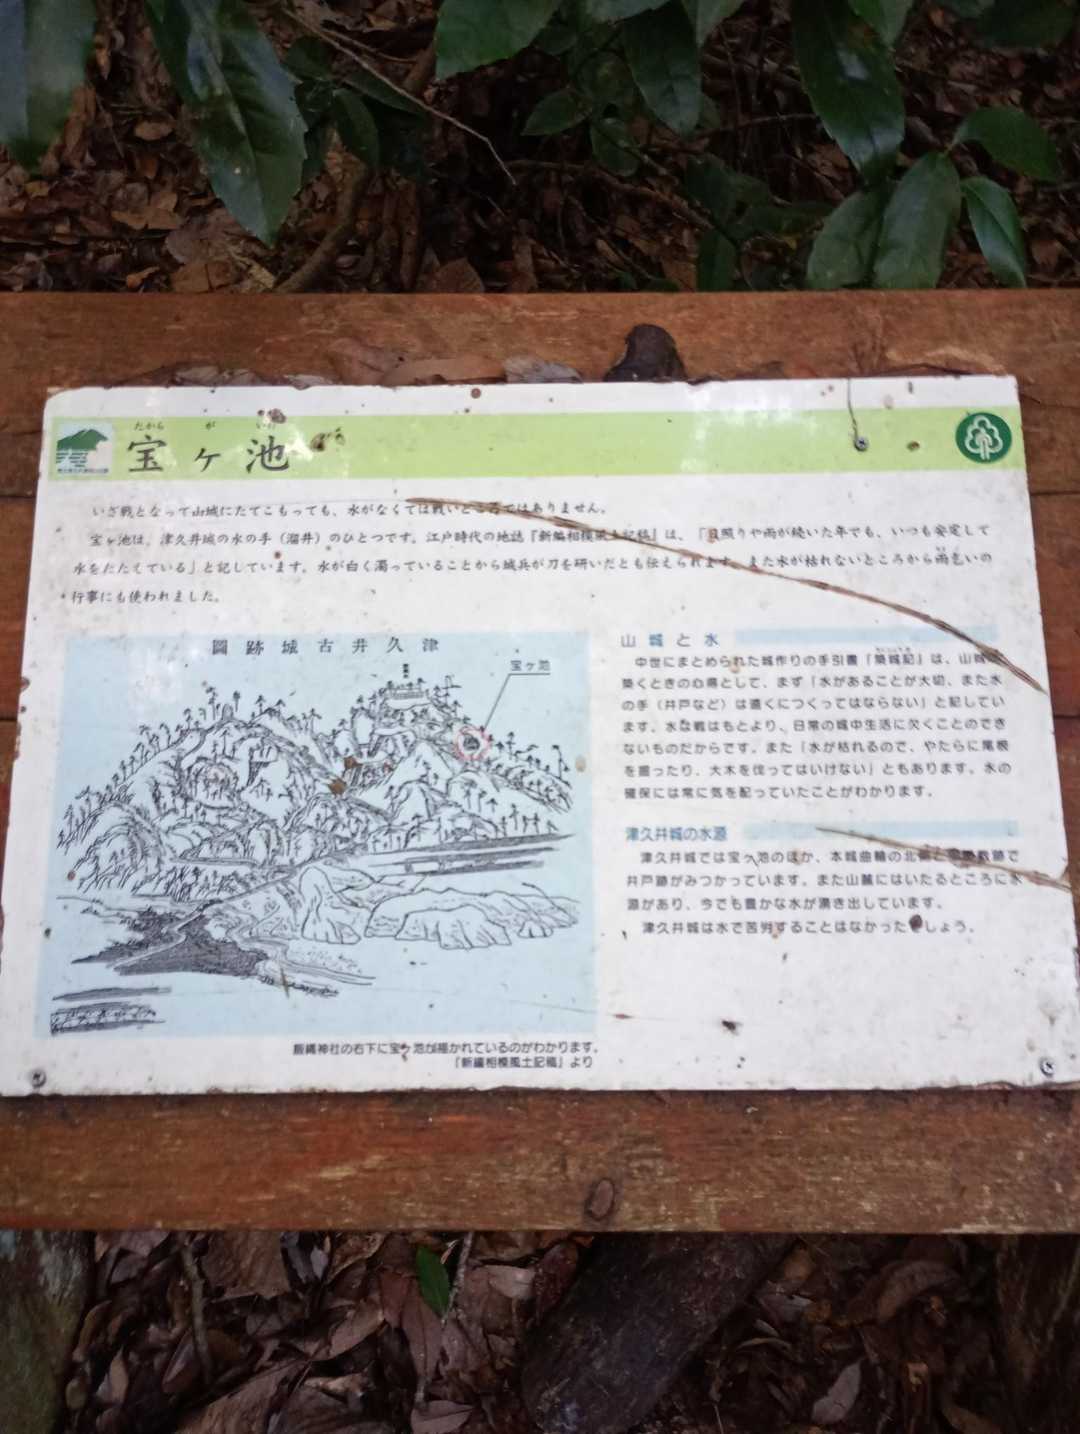 たから が いけ
宝ヶ池
いざ戦となって山城にたてこもっても、水がなくては戦いどころではありません。
宝ヶ池は、津久井城の水の手（溜井）のひとつです。江戸時代の地誌『新編相模風土記稿』は、「日照りや雨が続いた年でも、いつも安定して
水をたたえている」と記しています。水が白く濁っていることから城兵が刀を研いだとも伝えられます。また水が枯れないところから雨乞いの
行事にも使われました。
圖跡城古井久津
宝ヶ池
飯縄神社の右下に宝ヶ池が描かれているのがわかります。
『新編相模風土記稿』より
山城と水
中世にまとめられた城作りの手引書「築城記」は、山城を
築くときの心得として、まず「水があることが大切、また水
の手（井戸など）は遠くにつくってはならない」と記してい
ます。水は戦はもとより、日常の城中生活に欠くことのでき
ないものだからです。また「水が枯れるので、やたらに尾根
を掘ったり、大木を伐ってはいけない」ともあります。水の
確保には常に気を配っていたことがわかります。
津久井城の水源
津久井城では宝ヶ池のほか、本城曲輪の北側と屋敷跡で
井戸跡がみつかっています。また山麓にはいたるところに水
源があり、今でも豊かな水が湧き出しています。
津久井城は水で苦労することはなかったでしょう。